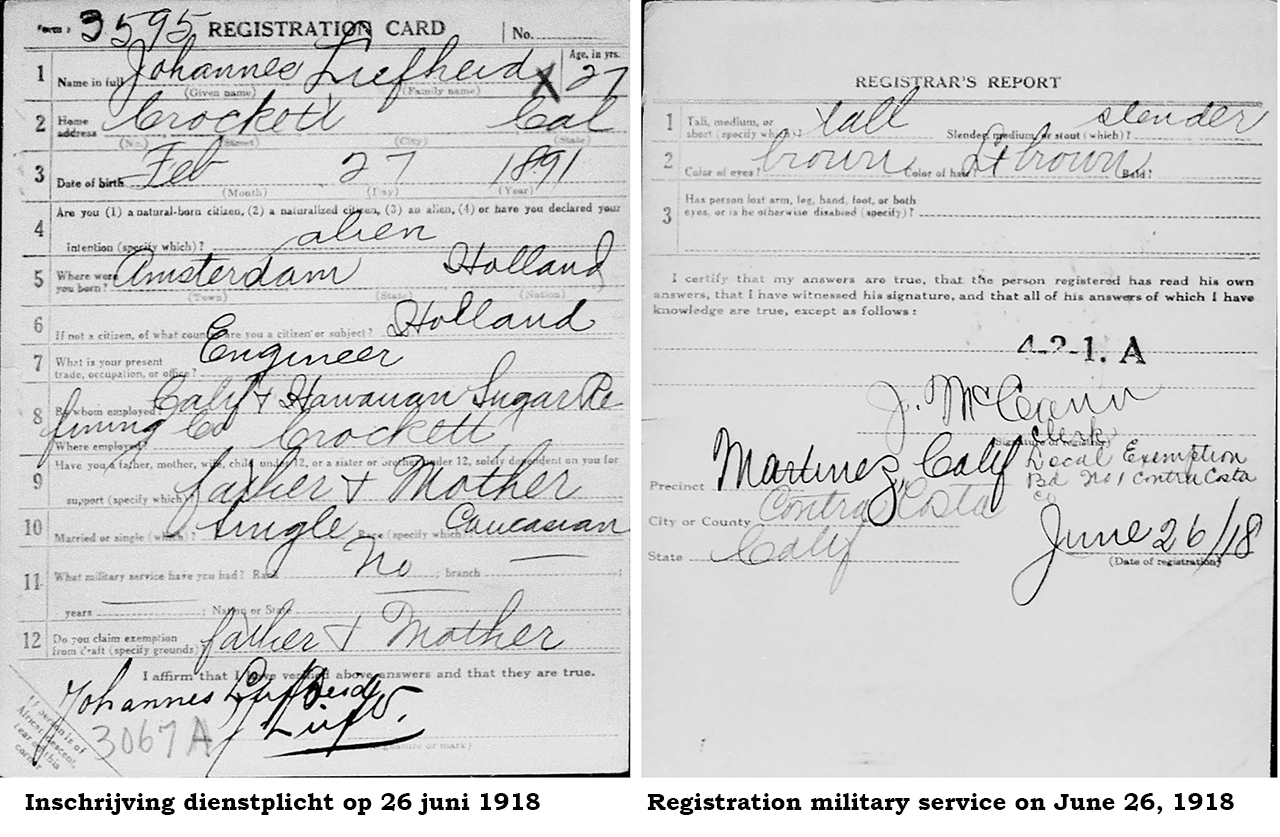 3595 REGISTRATION CARD No.
1 Name in full Johannes Liefheid X Age, in yrs. 27
(Given name) (Family name)
2 Home address Crockett Cal
(No.) (Street) (City) (State)
3 Date of birth Feb 27 1891
(Month) (Day) (Year)
4 Are you (1) a natural-born citizen, (2) a naturalized citizen, (3) an alien, (4) or have you declared your
intention (specify which)? alien
5 Where were you born? Amsterdam Holland
(Town) (State) (Nation)
6 If not a citizen, of what country are you a citizen or subject? Holland
7 What is your present trade, occupation, or office? Engineer
8 By whom employed? Calif + Hawaiian Sugar Re
fining Co
Where employed? Crockett
9 Have you a father, mother, wife, child under 12, or a sister or brother under 12, solely dependent on you for
support (specify which)? father + Mother
10 Married or single (which)? Single Race (specify which)? Caucasian
11 What military service have you had? Rank No ; branch ;
years ; Nation or State
12 Do you claim exemption from draft (specify grounds)? father + Mother
I affirm that I have verified above answers and that they are true.
Johannes Liefheid
(Signature or mark)
3067 A
If person is of
African descent,
tear off this
corner
REGISTRAR'S REPORT
1 Tall, medium, or short (specify which)? tall Slender, medium, or stout (which)? slender
2 Color of eyes? brown Color of hair? Lt brown Bald?
3 Has person lost arm, leg, hand, foot, or both
eyes, or is he otherwise disabled (specify)?
I certify that my answers are true, that the person registered has read his own
answers, that I have witnessed his signature, and that all of his answers of which I have
knowledge are true, except as follows:
4-2-1. A
J. McCann
Clerk
Precinct Martinez, Calif Local Exemption
Bd No 1 Contra Costa
Co
City or County Contra Costa
State Calif June 26/18
(Date of registration)
Inschrijving dienstplicht op 26 juni 1918
Registration military service on June 26, 1918